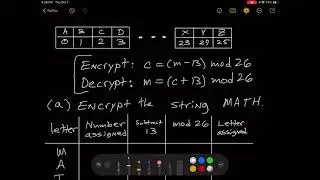 4:28 PM Thu Oct 7
A B C D X Y Z
0 1 2 3 23 24 25
Encrypt: c = (m-13) mod 26
Decrypt: m = (c+13) mod 26
(a.) Encrypt the string MATH.
letter Number assigned Subtract 13 mod 26 Letter assigned
M
A
T